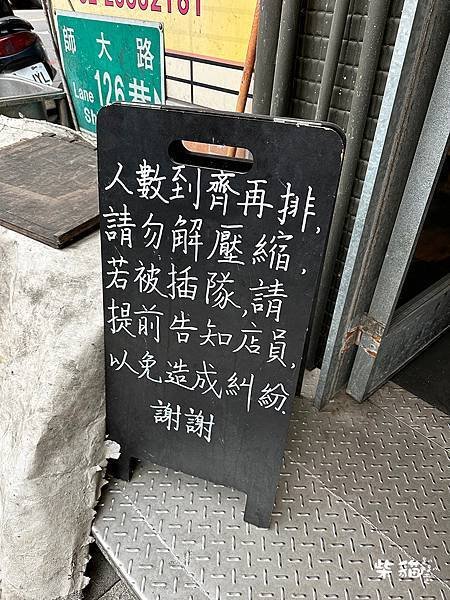 師大路
Lane 126巷
人數到齊再排,
請勿解壓縮,
若被插隊,請
提前告知店員,
以免造成糾紛.
謝謝
柴貓